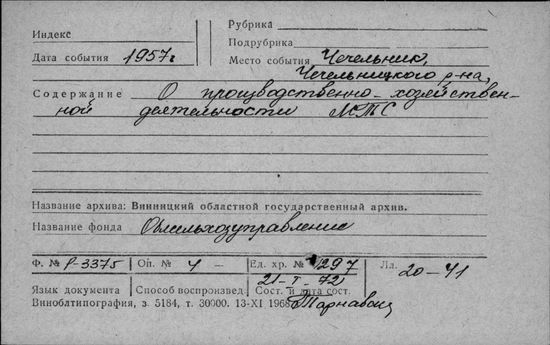 Индекс
Рубрика
Подрубрика
Дата события 1957г
Место события Чечельник,
Чечельницкого р-на,
Содержание О производственно-хозяйствен-
ной деятельности МТС
Название архива: Винницкий областной государственный архив.
Название фонда Облсельхозуправление
Ф. № Р-3375 Оп. № 4 – Ед. хр. № 1297 Лл. 20-41
21-I-72
Язык документа Способ воспроизвед. Сост. и дата сост.
Виноблтипография, з. 5184, т. 30000. 13-XI 1968